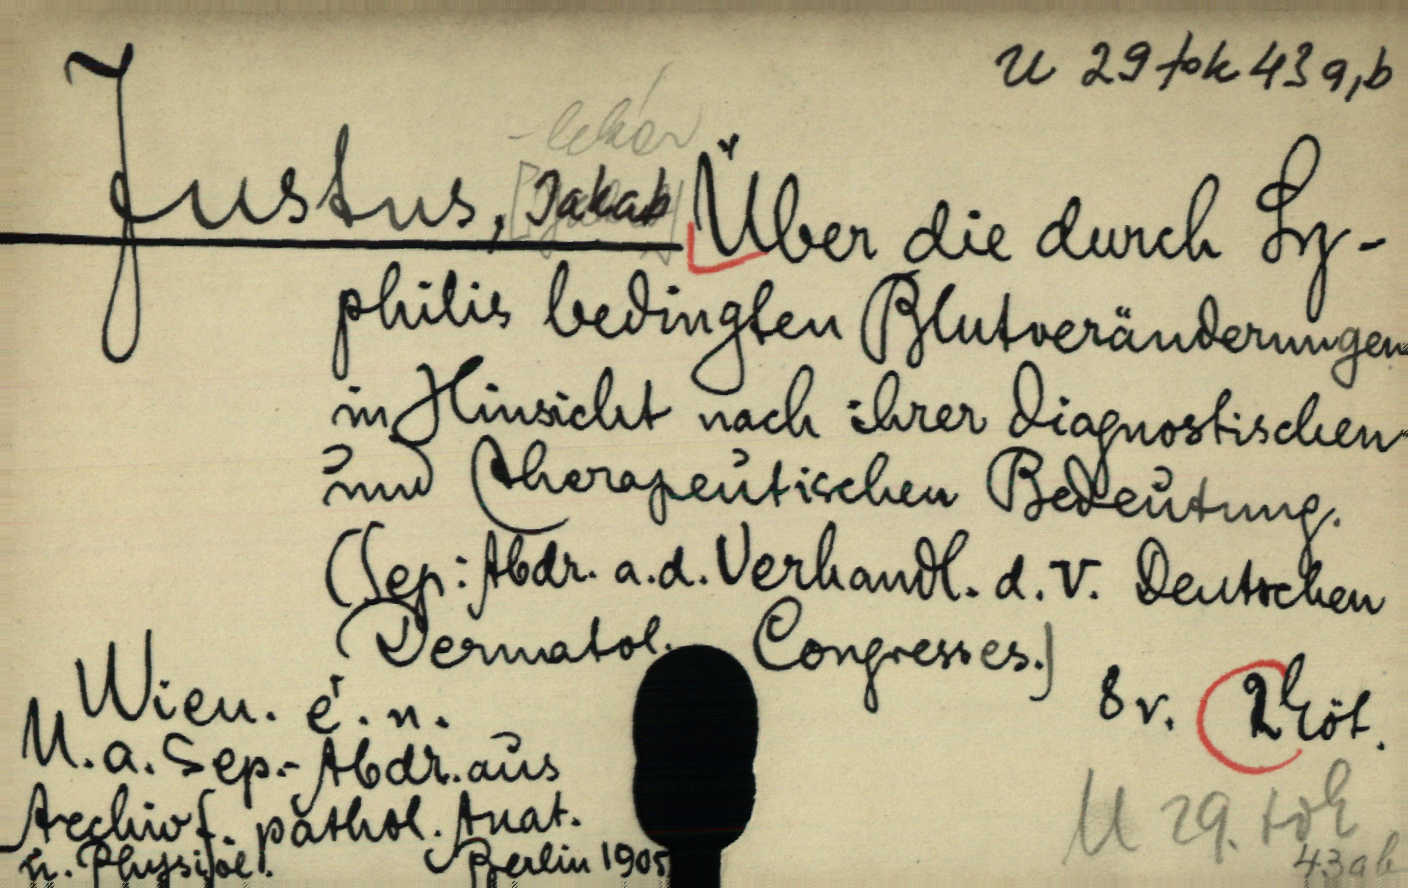 U 29 tok 43 a,b
- lekár
Justus, Jakab Über die durch Sy-
philis bedingten Blutveränderungen
in Hinsicht nach ihrer diagnostischen
und therapeutischen Bedeutung.
(Sep: Abdr. a. d. Verhandl. d. V. Deutschen
Dermatol. Congresses.)
Wien. é. n.
8 v. 2 köt.
U. a. Sep.- Abdr. aus
Archiv f. pathol. Anat.
u. Physiol. Berlin 1905
U 29. tok
43 a b